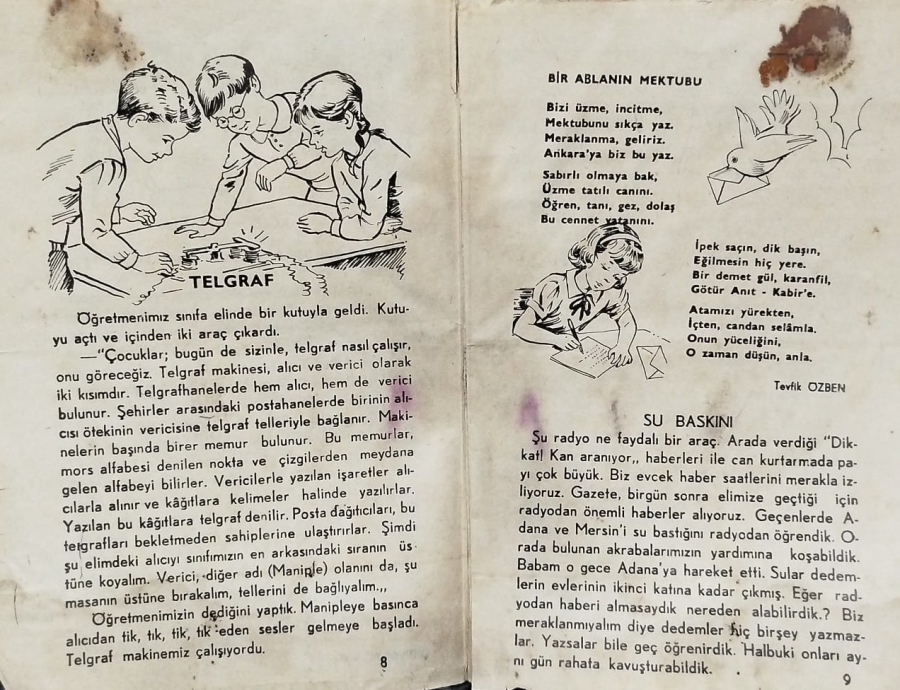 TELGRAF
Öğretmenimiz sınıfa elinde bir kutuyla geldi. Kutu-
yu açtı ve içinden iki araç çıkardı.
—"Çocuklar; bugün de sizinle, telgraf nasıl çalışır,
onu göreceğiz. Telgraf makinesi, alıcı ve verici olarak
iki kısımdır. Telgrafhanelerde hem alıcı, hem de verici
bulunur. Şehirler arasındaki postahanelerde birinin alı-
cısı ötekinin vericisine telgraf telleriyle bağlanır. Maki-
nelerin başında birer memur bulunur. Bu memurlar,
mors alfabesi denilen nokta ve çizgilerden meydana
gelen alfabeyi bilirler. Vericilerle yazılan işaretler alı-
cılarla alınır ve kâğıtlara kelimeler halinde yazılırlar.
Yazılan bu kâğıtlara telgraf denilir. Posta dağıtıcıları, bu
telgrafları bekletmeden sahiplerine ulaştırırlar. Şimdi
şu elimdeki alıcıyı sınıfımızın en arkasındaki sıranın üs
tüne koyalım. Verici, diğer adı (Maniple) olanını da, şu
masanın üstüne bırakalım, tellerini de bağlıyalım.,,
Öğretmenimizin dediğini yaptık. Manipleye basınca
alıcıdan tik, tık, tik, tık eden sesler gelmeye başladı.
Telgraf makinemiz çalışıyordu.
8
BİR ABLANIN MEKTUBU
Bizi üzme, incitme,
Mektubunu sıkça yaz.
Meraklanma, geliriz.
Ankara'ya biz bu yaz.
Sabırlı olmaya bak,
Üzme tatılı canını.
Öğren, tanı, gez, dolaş
Bu cennet vatanını.
İpek saçın, dik başın,
Eğilmesin hiç yere.
Bir demet gül, karanfil,
Götür Anıt - Kabir'e.
Atamızı yürekten,
İçten, candan selâmla.
Onun yüceliğini,
O zaman düşün, anla.
Tevfik ÖZBEN
SU BASKINI
Şu radyo ne faydalı bir araç. Arada verdiği "Dik-
kat! Kan aranıyor,, haberleri ile can kurtarmada pa-
yı çok büyük. Biz evcek haber saatlerini merakla iz-
liyoruz. Gazete, birgün sonra elimize geçtiği için
radyodan önemli haberler alıyoruz. Geçenlerde A-
dana ve Mersin'i su bastığını radyodan öğrendik. O-
rada bulunan akrabalarımızın yardımına koşabildik.
Babam o gece Adana'ya hareket etti. Sular dedem-
lerin evlerinin ikinci katına kadar çıkmış. Eğer rad-
yodan haberi almasaydık nereden alabilirdik.? Biz
meraklanmıyalım diye dedemler hiç birşey yazmaz-
lar. Yazsalar bile geç öğrenirdik. Halbuki onları ay-
nı gün rahata kavuşturabildik.
9